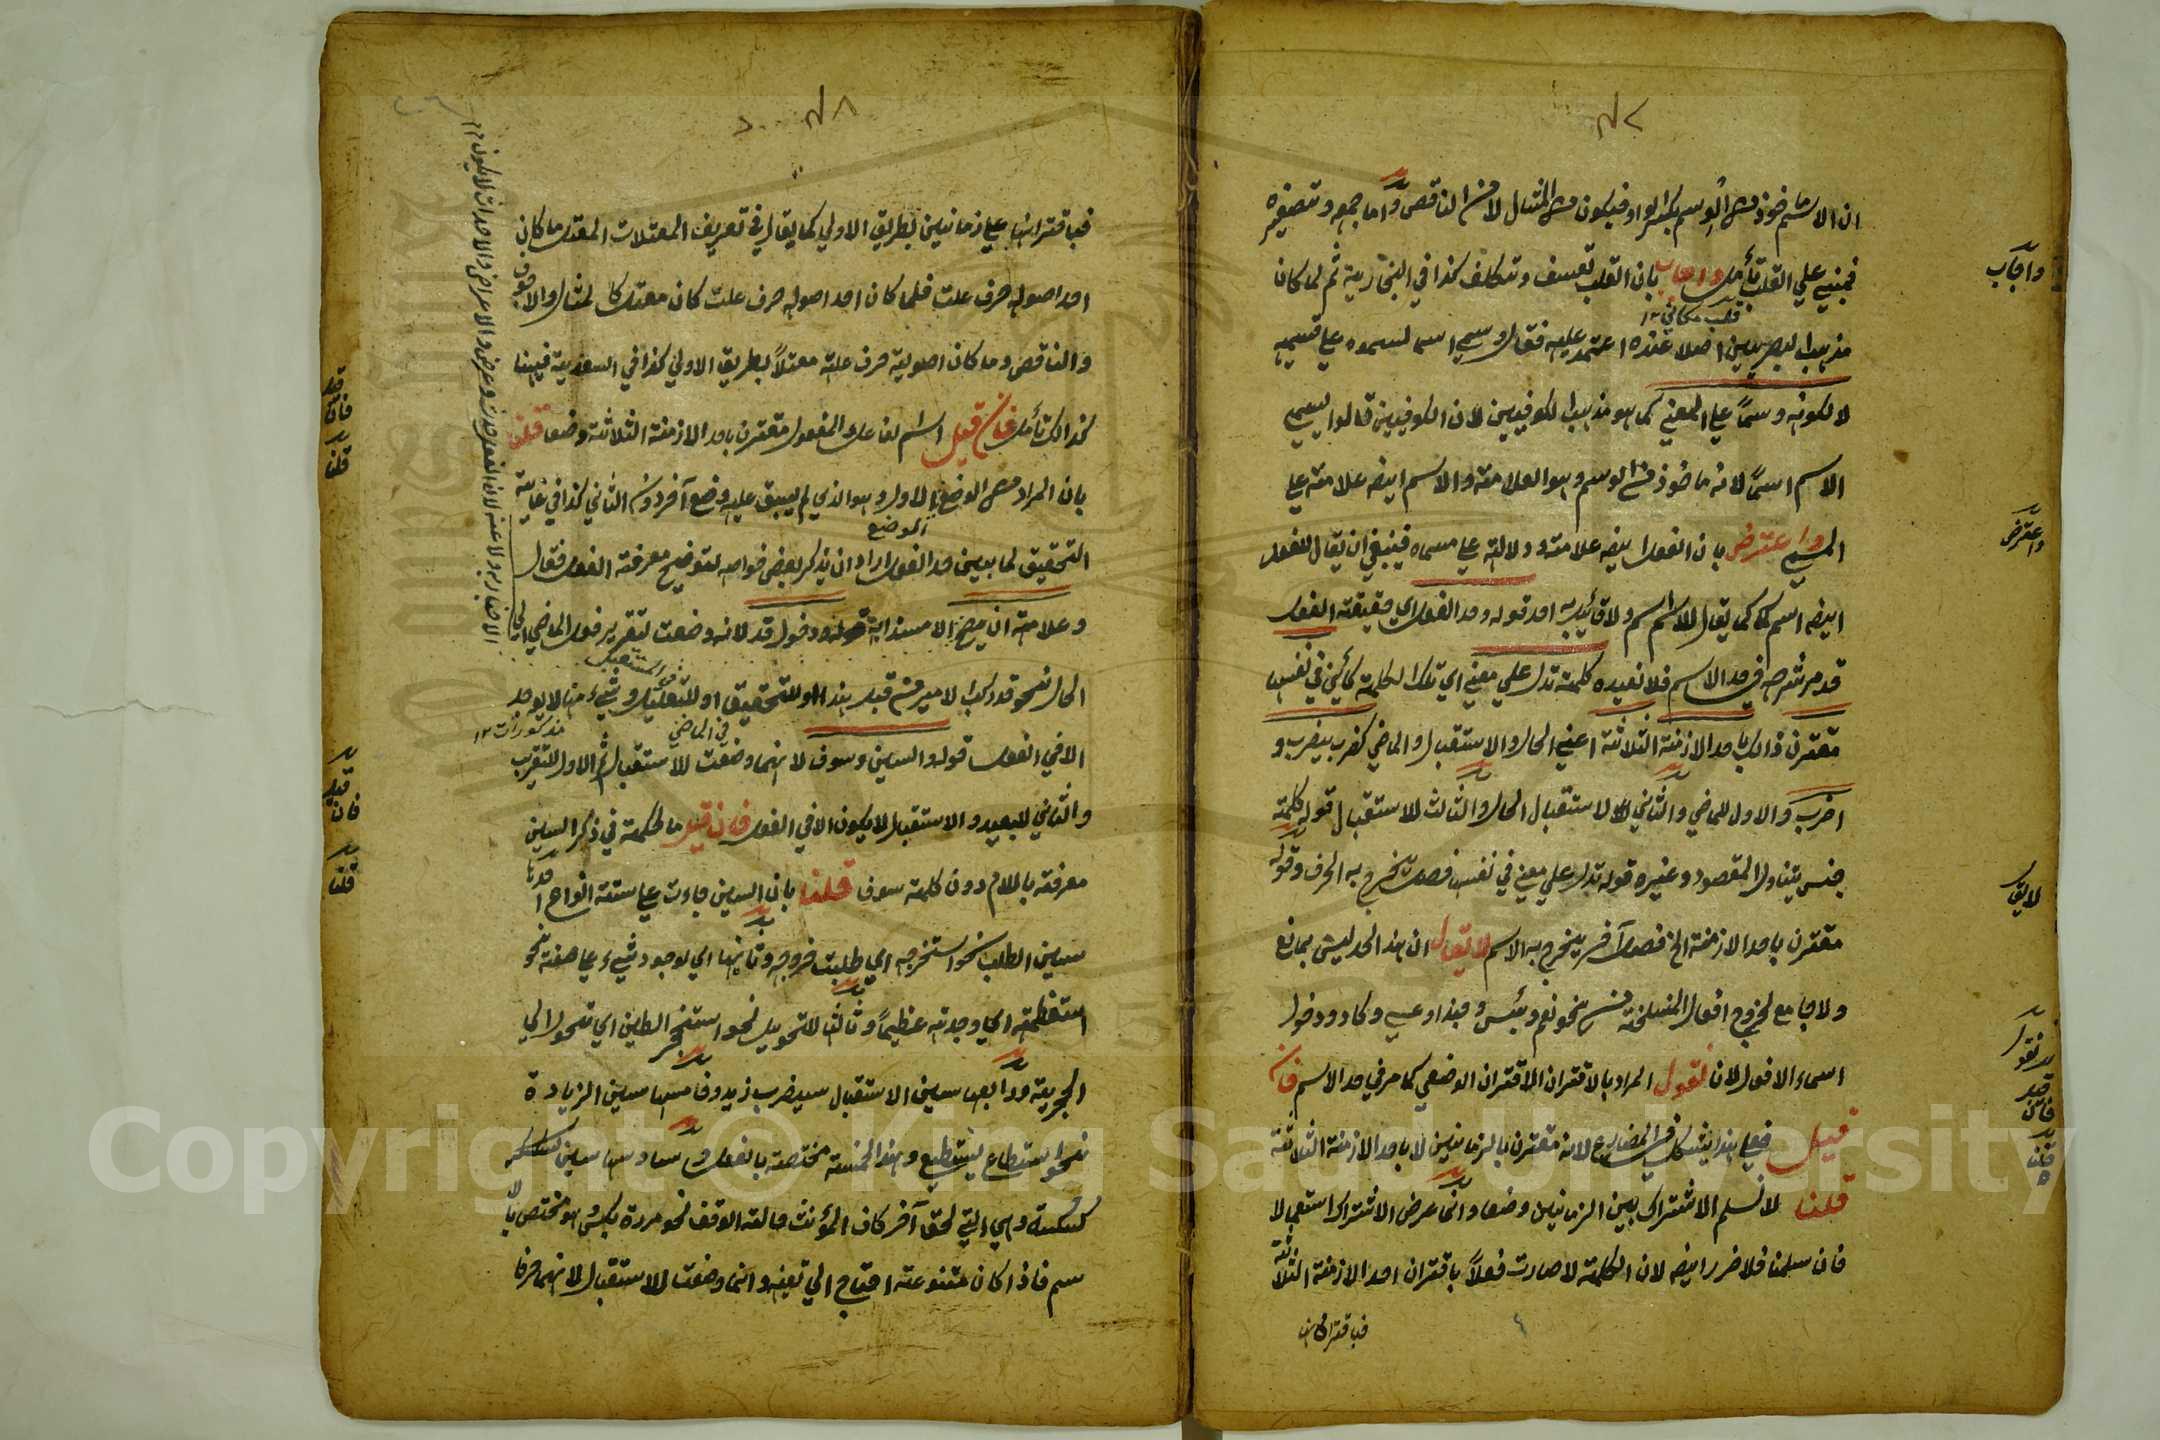 ان الاسم ماخوذ من الوسم بكسر الواو فيكون من المثال لا من الناقص واما جمعه وتصغيره
فمبني علي القلب تأمل واجاب بان القلب تعسف وتكلف كذا في البخارية ثم لما كان
قلب مكاني ١٢
مذهب البصريين اصلا عنده اعتمد عليه فقال وسمي اسما لسموه علي قسيميه
لا لكونه وسما علي المعني كما هو مذهب الكوفيين لان الكوفيين قالوا يسمي
الاسم اسمًا لانه ماخوذ من الوسم وهو العلامة والاسم ايضه علامة علي
المسمي واعترض بان الفعل ايضه علامة ودلالة علي مسماه فينبغي ان يقال للفعل
ايضه اسم كما يقال للاسم اسم ولا قائل به احد قوله وحد الفعل اي حقيقة الفعل
قد مر شرحه في حد الاسم فلا نعيده كلمة تدل علي معني اي تلك الكلمة كائن في نفسها
مقترن ذالك باحد الازمنة الثلاثة اعني الحال والاستقبال والماضي كضرب يضرب و
اضرب والاول للماضي والثاني للاستقبال الحال والثالث للاستقبال قوله كلمة
جنس يتناول المقصود وغيره قوله تدل علي معني في نفسها فصل يخرج به الحرف وقوله
مقترن باحد الازمنة الخ فصل آخر يخرج به الاسم لا يقال ان هذا الحد ليس بمانع
ولا جامع لخروج افعال المنسلخة من نحو نعم وبئس وحبذا وعسي وكاد ودخول
اسماء الافعال لانا نقول المراد بالاقتران الاقتران الوضعي كما مر في حد الاسم فان
قيل فعلي هذا يشكل في المضارع لانه مقترن بالزمانين لا باحد الازمنة الثلاثة
قلنا لا نسلم الاشتراك بين الزمانين وضعا وانما عرض الاشتراك استعمالا
فان سلمنا فلا ضرر ايضه لان الكلمة لا صارت فعلاً باقتران احد الازمنة الثلاثة
فباقترانها
واجاب
واعترض
لا يقال
نقول
فان قيل
قلنا
٤٨
فباقترانها علي زمانين بطريق الاولي كما يقال في تعريف المعتلات المعتل ما كان
احد اصوله حرف علت فلما كان احد اصوله حرف علت كان معتلا كالمثال والاجوف
والناقص وما كان اصوليه حرف علة معتلاً بطريق الاولي كذا في السعدية فههنا
كذالك تأمل فان قيل اسم الفاعل والمفعول مقترن باحد الازمنة الثلاثة وضعا قلنا
بان المراد من الوضع الاول وهو الذي لم يسبق عليه وضع آخر دون الثاني كذا في غاية
الموضع
التحقيق لما بين حد الفعل اراد ان يذكر بعض خواصه لتوضيح معرفة الفعل فقال
وعلامته ان يصح الاسناد به ودخول قد لانه وضعت لتقرير فعل الماضي الي
المستقبل
الحال نحو قد ركب الامير من قبل هذا او للتحقيق او للتقليل وشيء منها لا يوجد
في الماضي
مذكورات ١٢
الا في الفعل قوله والسين وسوف لانهما وضعت للاستقبال ثم الاول للتقريب
والثاني للبعيد والاستقبال لا يكون الا في الفعل فان قيل ما الحكمة في ذكر السين
معرفة باللام دون كلمة سوف قلنا بان السين جاءت علي ستة انواع احدها
سين الطلب نحو استخرجه اي طلبت خروجه وثانيها اي لوجود شيء علي صفة نحو
استعظمته اي وجدته عظيماً وثالثها للتحويل نحو استحجر الطين اي تحول الي
الحجرية ورابعها سين الاستقبال سيضرب زيد وخامسها سين الزيادة
نحو استطاع يستطيع وهذا الخمسة مختصة بالفعل وسادسها سين كسكسه
كسكسة وهي التي لحق آخر كاف المؤنث حالة الوقف نحو مررت بكس وهو مختص بالا
سم فاذا كان متنوعة احتاج الي تعينه وانما وضعت للاستقبال لانهما حرفا
فان قيل
قلنا
قيل
فان
قلنا